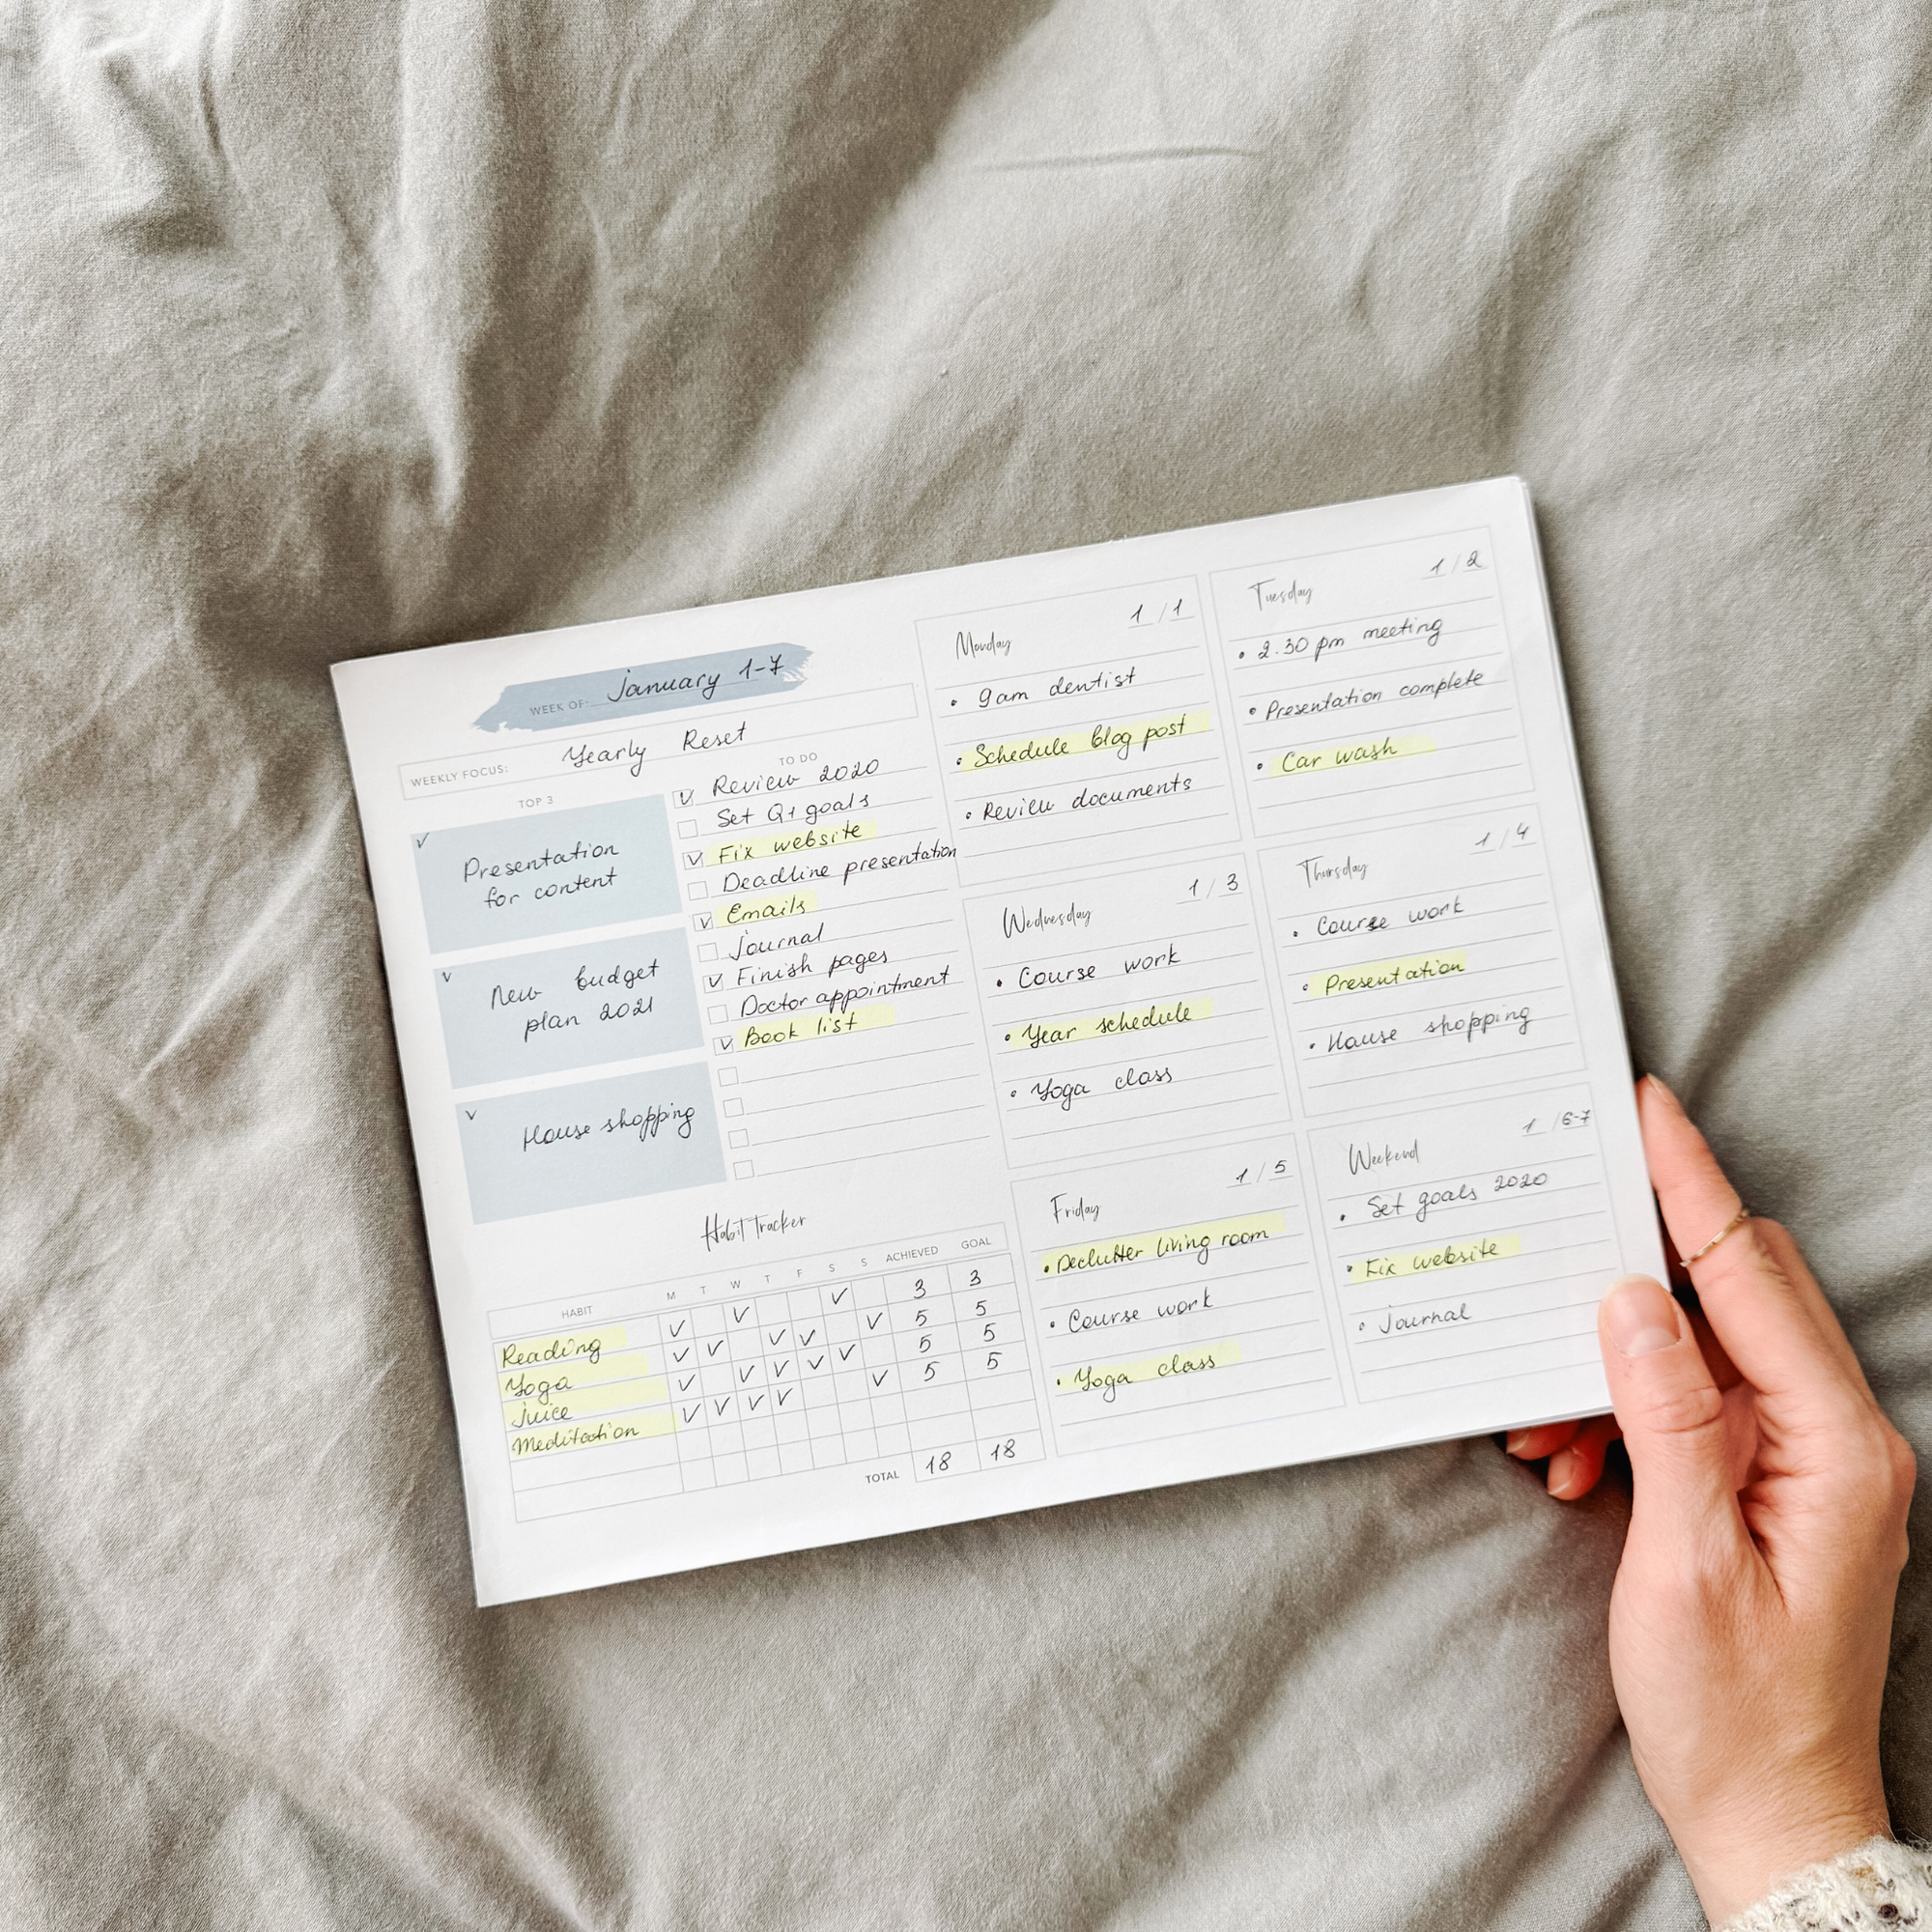 WEEK OF: January 1-7
WEEKLY FOCUS: Yearly Reset
TOP 3
Presentation
for content
New budget
plan 2021
House shopping
TO DO
Review 2020
Set Q1 goals
Fix website
Deadline presentation
Emails
Journal
Finish pages
Doctor appointment
Book list
Habit Tracker
HABIT M T W T F S S ACHIEVED GOAL
Reading 3 3
Yoga 5 5
Juice 5 5
Meditation 5 5
TOTAL 18 18
Monday 1/1
• 9am dentist
• Schedule blog post
• Review documents
Tuesday 1/2
• 2.30 pm meeting
• Presentation complete
• Car wash
Wednesday 1/3
• Course work
• Year schedule
• Yoga class
Thursday 1/4
• Course work
• Presentation
• House shopping
Friday 1/5
• Declutter living room
• Course work
• Yoga class
Weekend 1/6-7
• Set goals 2020
• Fix website
• Journal